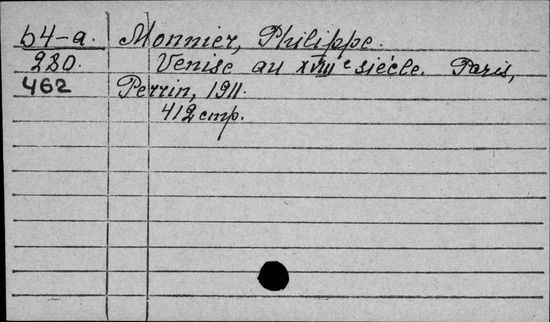 64-a. Monnier, Philippe.
220. Venise au XVIIIe siècle. Paris,
462 Perrin, 1911.
412 стр.